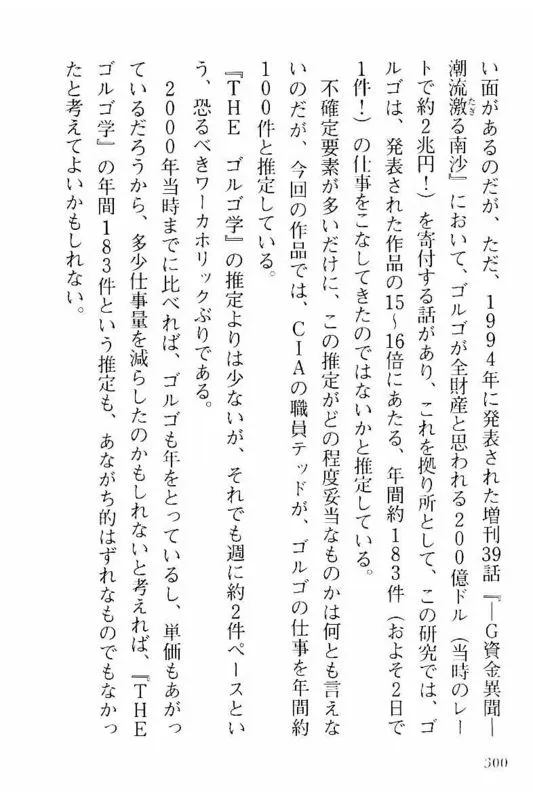 い面があるのだが、ただ、1994年に発表された増刊39話『―G資金異聞―
潮流激る南沙』において、ゴルゴが全財産と思われる200億ドル（当時のレー
トで約2兆円！）を寄付する話があり、これを拠り所として、この研究では、ゴ
ルゴは、発表された作品の15〜16倍にあたる、年間約183件（およそ2日で
1件！）の仕事をこなしてきたのではないかと推定している。
不確定要素が多いだけに、この推定がどの程度妥当なものかは何とも言えな
いのだが、今回の作品では、CIAの職員テッドが、ゴルゴの仕事を年間約
100件と推定している。
『THE ゴルゴ学』の推定よりは少ないが、それでも週に約2件ペースとい
う、恐るべきワーカホリックぶりである。
2000年当時までに比べれば、ゴルゴも年をとっているし、単価もあがっ
ているだろうから、多少仕事量を減らしたのかもしれないと考えれば、『THE
ゴルゴ学』の年間183件という推定も、あながち的はずれなものでもなかっ
たと考えてよいかもしれない。
300